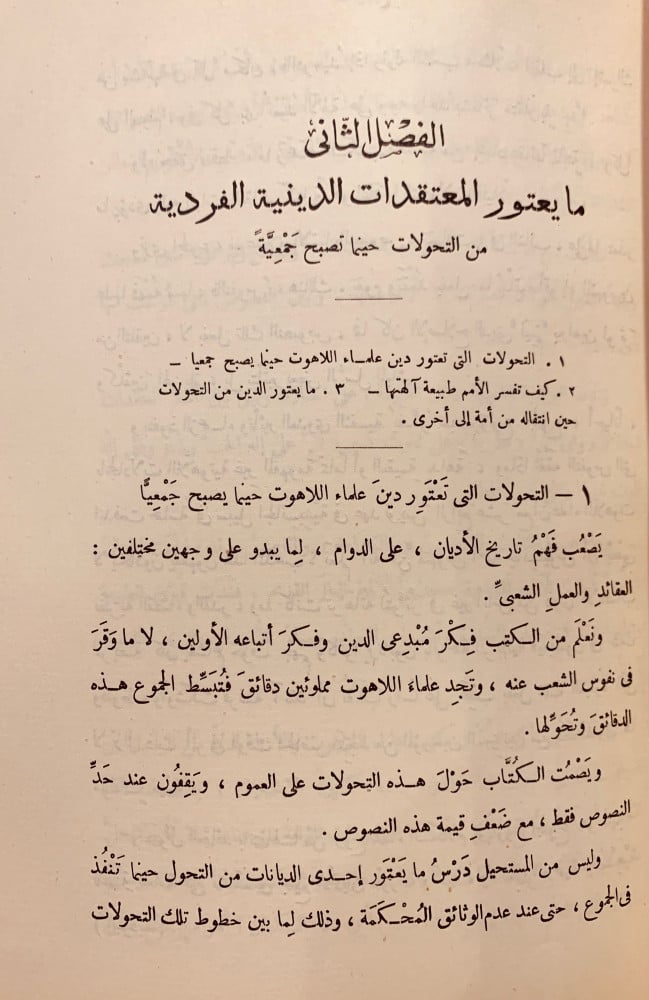 الفصل الثانى
ما يعتور المعتقدات الدينية الفردية
من التحولات حينما تصبح جَمْعِيَّةً
١ . التحولات التى تعتور دين علمـاء اللاهوت حينما يصبح جمعيا –
٢ . كيف تفسر الأمم طبيعة آلهتها – ٣ . ما يعتور الدين من التحولات
حين انتقاله من أمة إلى أخرى .
١ – التحولات التى تَعْتَوِر دينَ علماء اللاهوت حينما يصبح جَمْعِيًّا
يَصْعُب فَهْمُ تاريخ الأديان ، على الدوام ، لِما يبدو على وجهين مختلفين :
العقائدِ والعملِ الشعبىِّ .
ونَعْلَم من الكتب فِكْرَ مُبْدِعى الدين وفـكرَ أتباعه الأولين ، لا ما وَقَرَ
فى نفوس الشعب عنه ، وتَجِد علماءَ اللاهوت مملوئين دقائقَ فتُبَسِّط الجموع هـذه
الدقائقَ وتُحَوِّلها .
ويَصْمُت الـكُتَّاب حَوْلَ هـذه التحولات على العموم ، ويَقِفُون عند حَدِّ
النصوص فقط ، مع ضَعْفِ قيمة هذه النصوص .
وليس من المستحيل دَرْسُ ما يَعْتَوِر إحـدى الديانات من التحول حينما تَنْفُذ
فى الجموع ، حتى عند عدم الوثائق المُحْـكَمَة ، وذلك لِما بين خطوط تلك التحولات